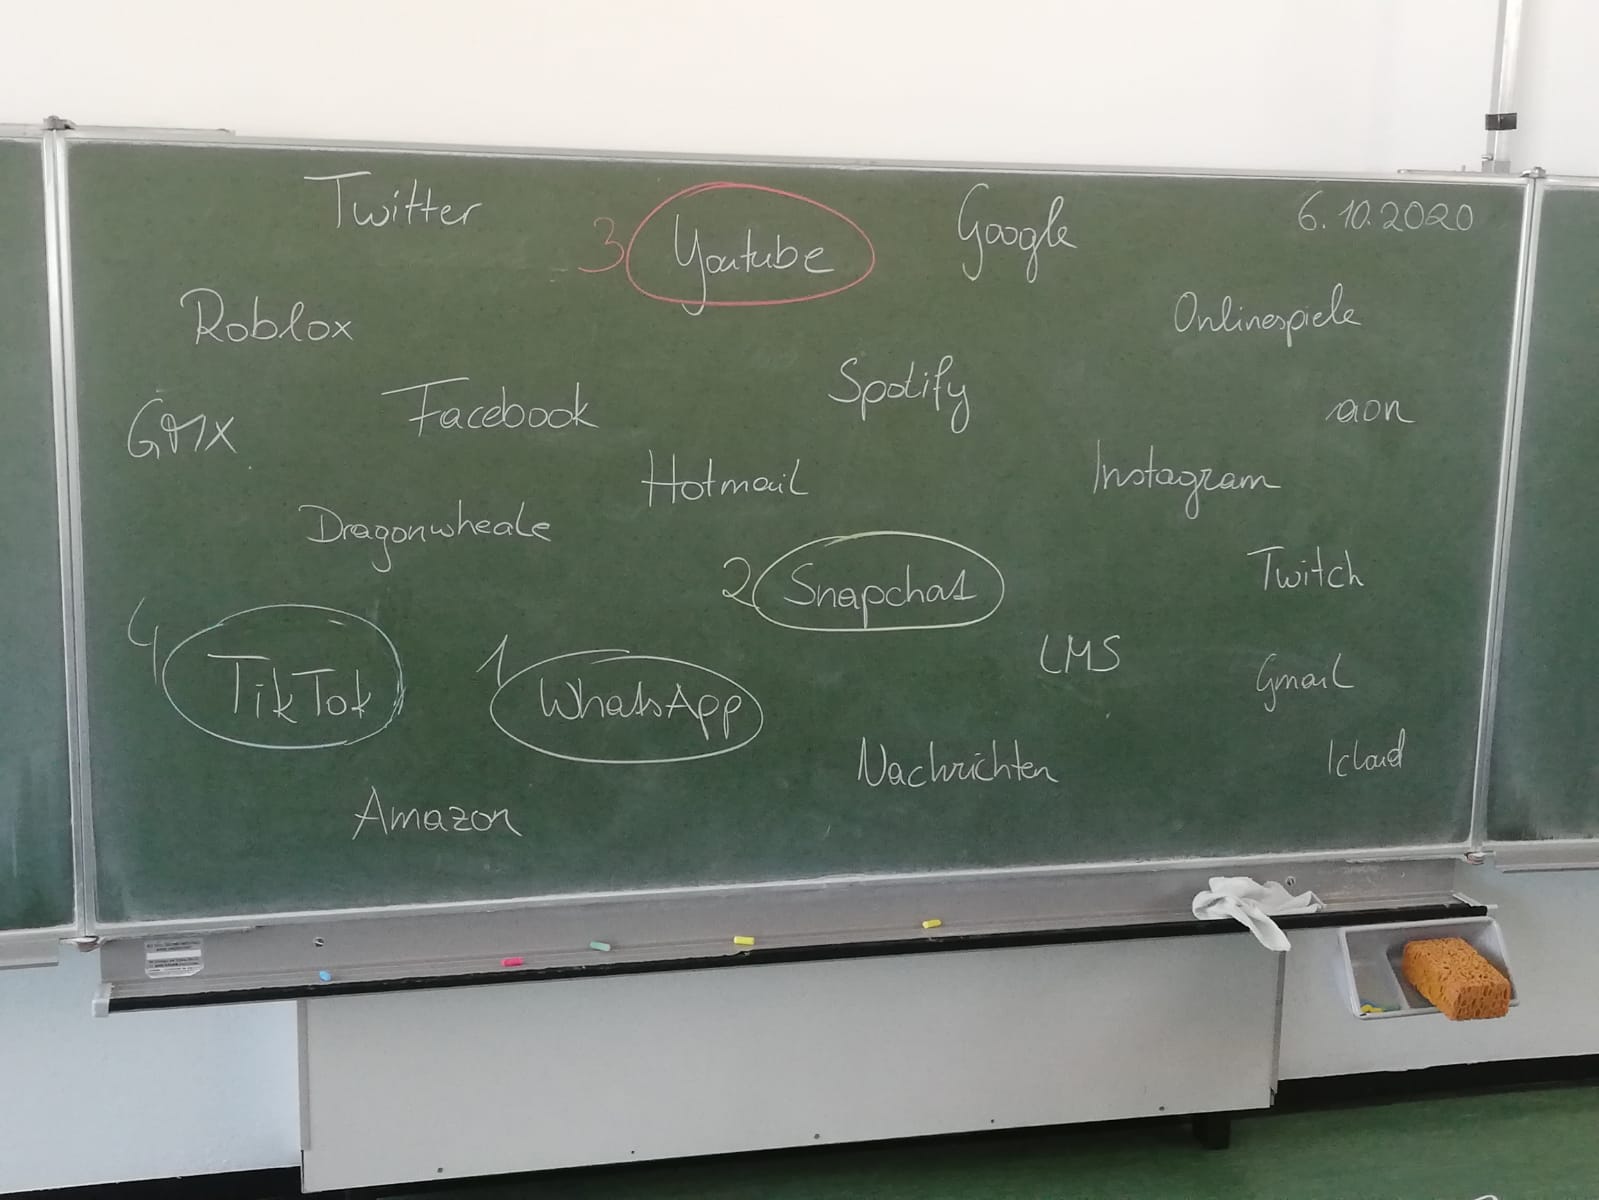 Twitter
3 Youtube
Google
6.10.2020
Roblox
Onlinespiele
Spotify
Facebook
aon
GMX
Hotmail
Instagram
Dragonwheale
2 Snapchat
Twitch
4 TikTok
1 WhatsApp
LMS
Gmail
Nachrichten
Icloud
Amazon